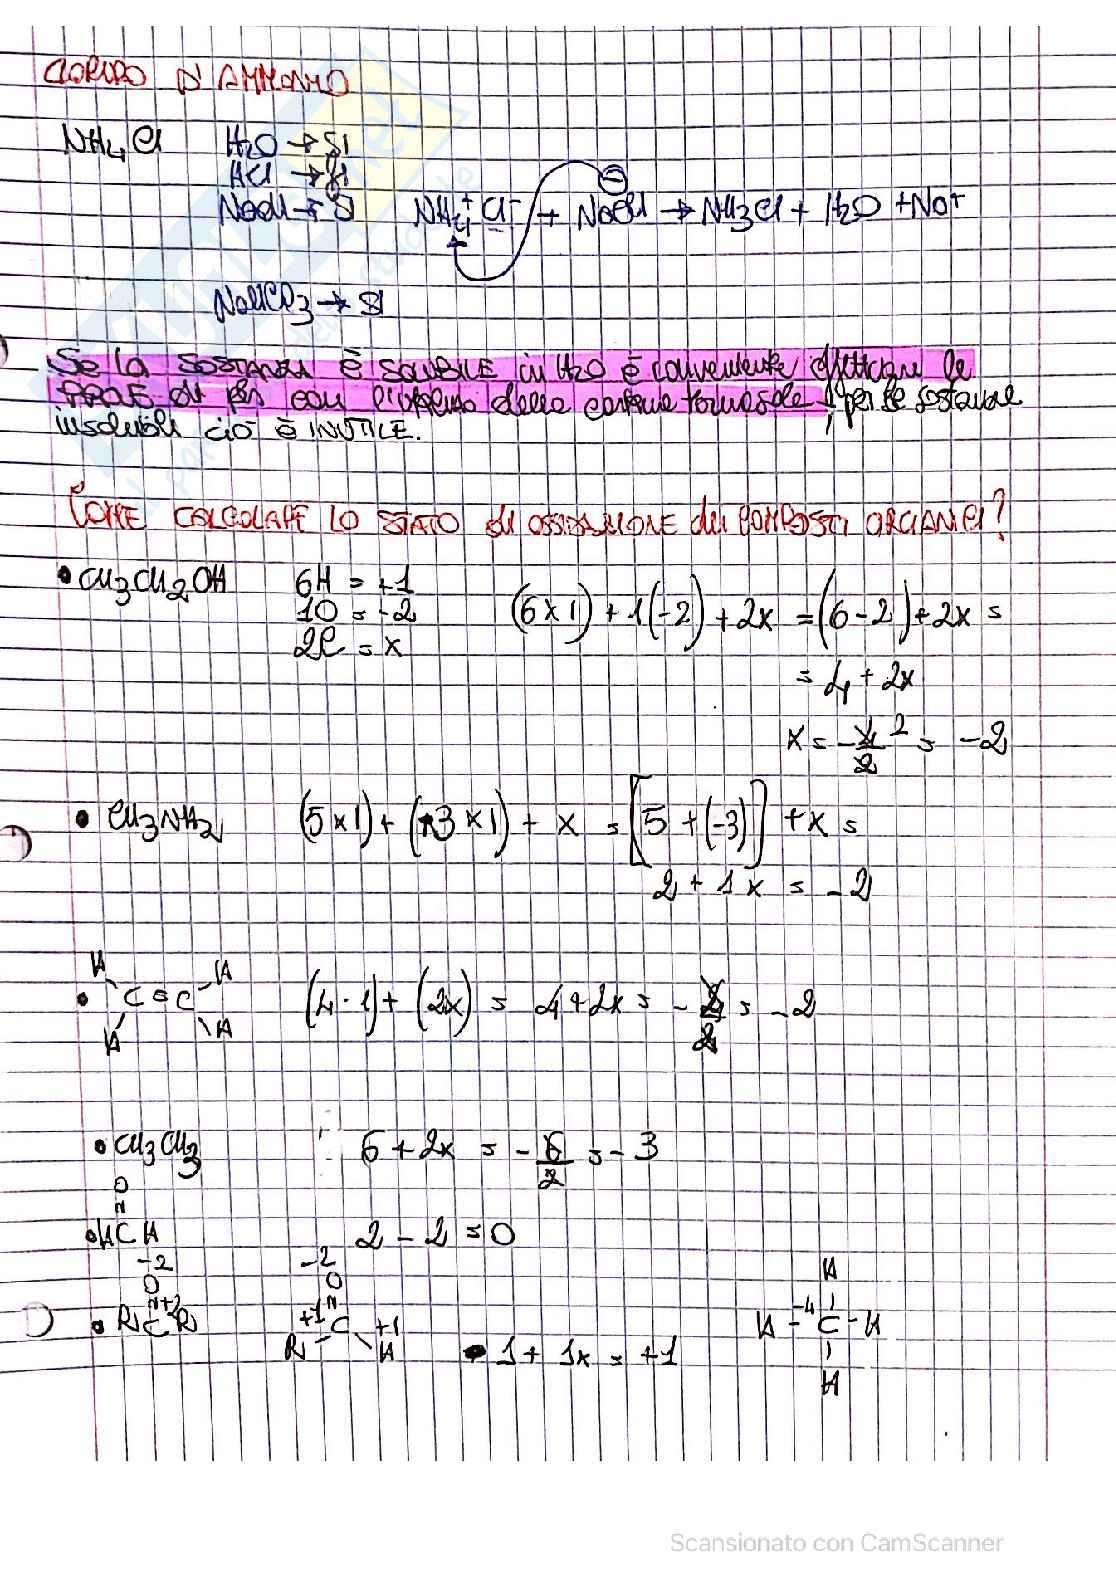 CLORURO D'AMMONIO
NH4Cl H2O → SI
HCl → SI
NaOH → SI NH4+ Cl- + NaOH → NH3Cl + H2O + Na+
NaHCO3 → SI
Se la SOSTANZA È SOLUBILE in H2O è conveniente effettuare le
PROVE di pH con l'utilizzo della cartina tornasole, per le sostanze
insolubili ciò È INUTILE.
COME CALCOLARE LO STATO di OSSIDAZIONE dei COMPOSTI ORGANICI?
• CH3CH2OH 6H = +1
1O = -2 (6x1) + 1(-2) + 2x = (6-2) + 2x =
2C = x
= 4 + 2x
x = -4/2 2 = -2
• CH3NH2 (5x1) + (-3x1) + x = [5 + (-3)] + x =
2 + 1x = -2
H H
• C = C (4·1) + (2x) = 4 + 2x = -4/2 = -2
H H
• CH3CH3 6 + 2x = -6/2 = -3
O
=
• HCH 2 - 2 = 0
-2 -2 H
O O
= +2 +1 =
• R C R C +1 H - -4 C - H
R H • 1 + 1x = +1
H
Scansionato con CamScanner